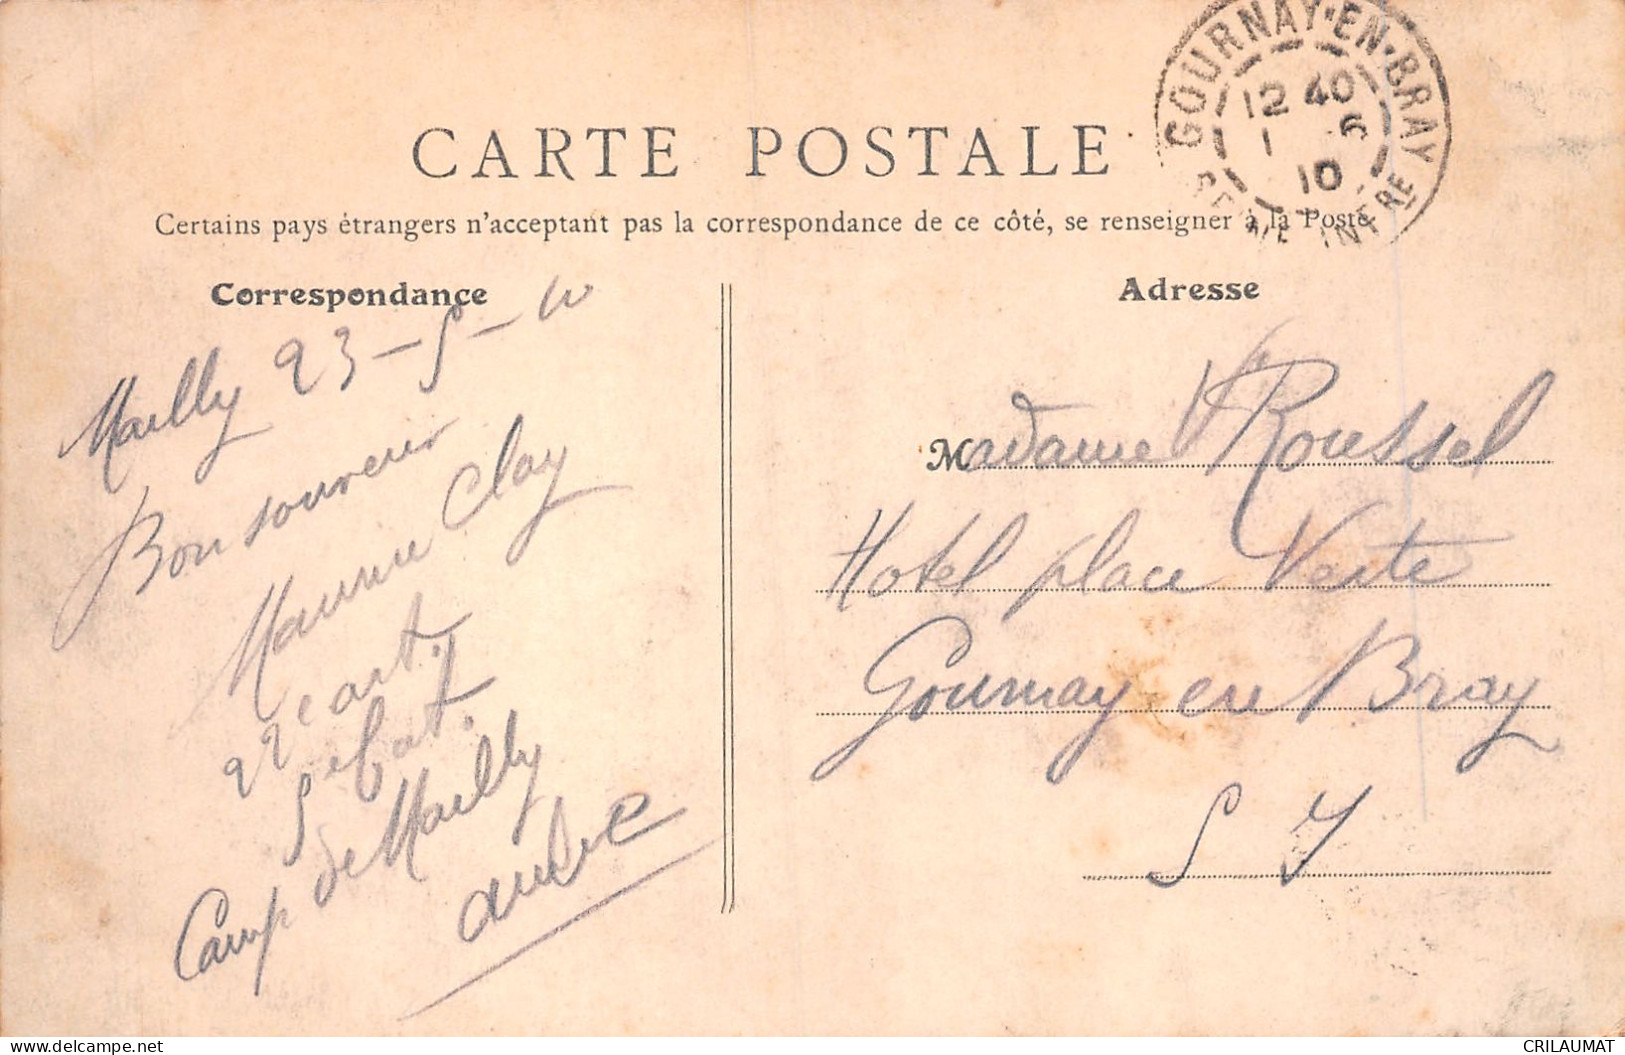 CARTE POSTALE
Certains pays étrangers n'acceptant pas la correspondance de ce côté, se renseigner à la Poste
GOURNAY-EN-BRAY
12 40
1 6
10
SEINE INFRE
Correspondance
Mailly 23-5-10
Bon souvenir
Maurice Clay
22e art.
5e bat.
Camp de Mailly
aube
Adresse
Madame Vve Roussel
Hotel place Verte
Gournay en Bray
S I
delcampe.net
CRILAUMAT